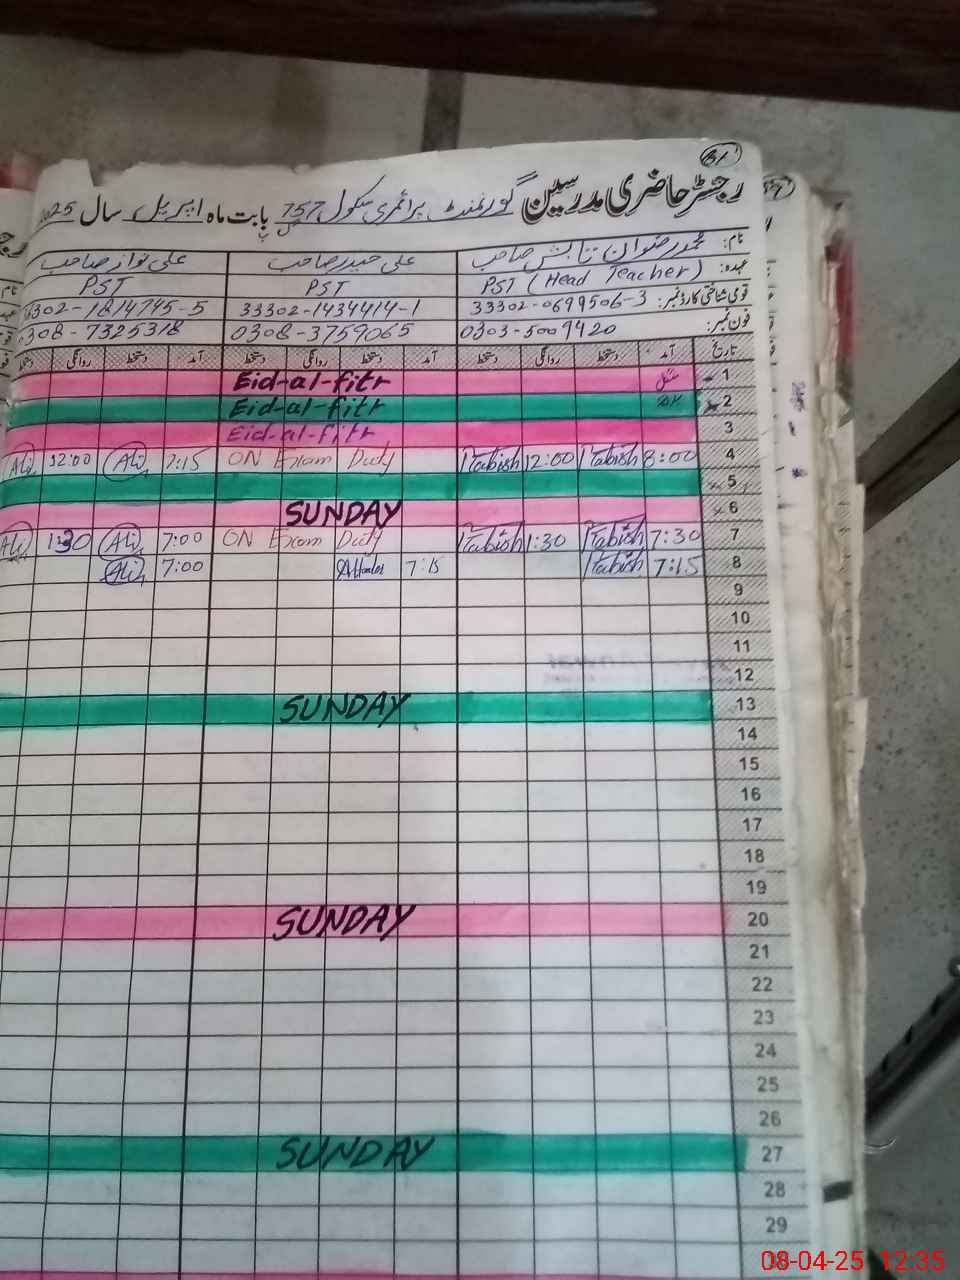 81
رجسٹر حاضری مدرسین گورنمنٹ پرائمری سکول 757 بابت ماہ اپریل سال 2025
نام: محمد رضوان تابش صاحب علی حیدر صاحب علی نواز صاحب
عہدہ: PST (Head Teacher) PST PST
قومی شناختی کارڈ نمبر: 33302-0699506-3 33302-1434414-1 33302-1814745-5
فون نمبر: 0303-5009420 0308-3759065 0308-7325318
تاریخ آمد دستخط روانگی دستخط آمد دستخط روانگی دستخط آمد دستخط روانگی دستخط
1 منگل Eid-al-fitr
2 Eid-al-fitr
3 Eid-al-fitr
4 8:00 Tabish 12:00 Tabish ON Exam Duty 7:15 Ali 12:00 Ali
5
6 SUNDAY
7 7:30 Tabish 1:30 Tabish ON Exam Duty 7:00 Ali 1:30 Ali
8 7:15 Tabish 7:15 7:00 Ali
9
10
11
12
13 SUNDAY
14
15
16
17
18
19
20 SUNDAY
21
22
23
24
25
26
27 SUNDAY
28
29
08-04-25 12:35